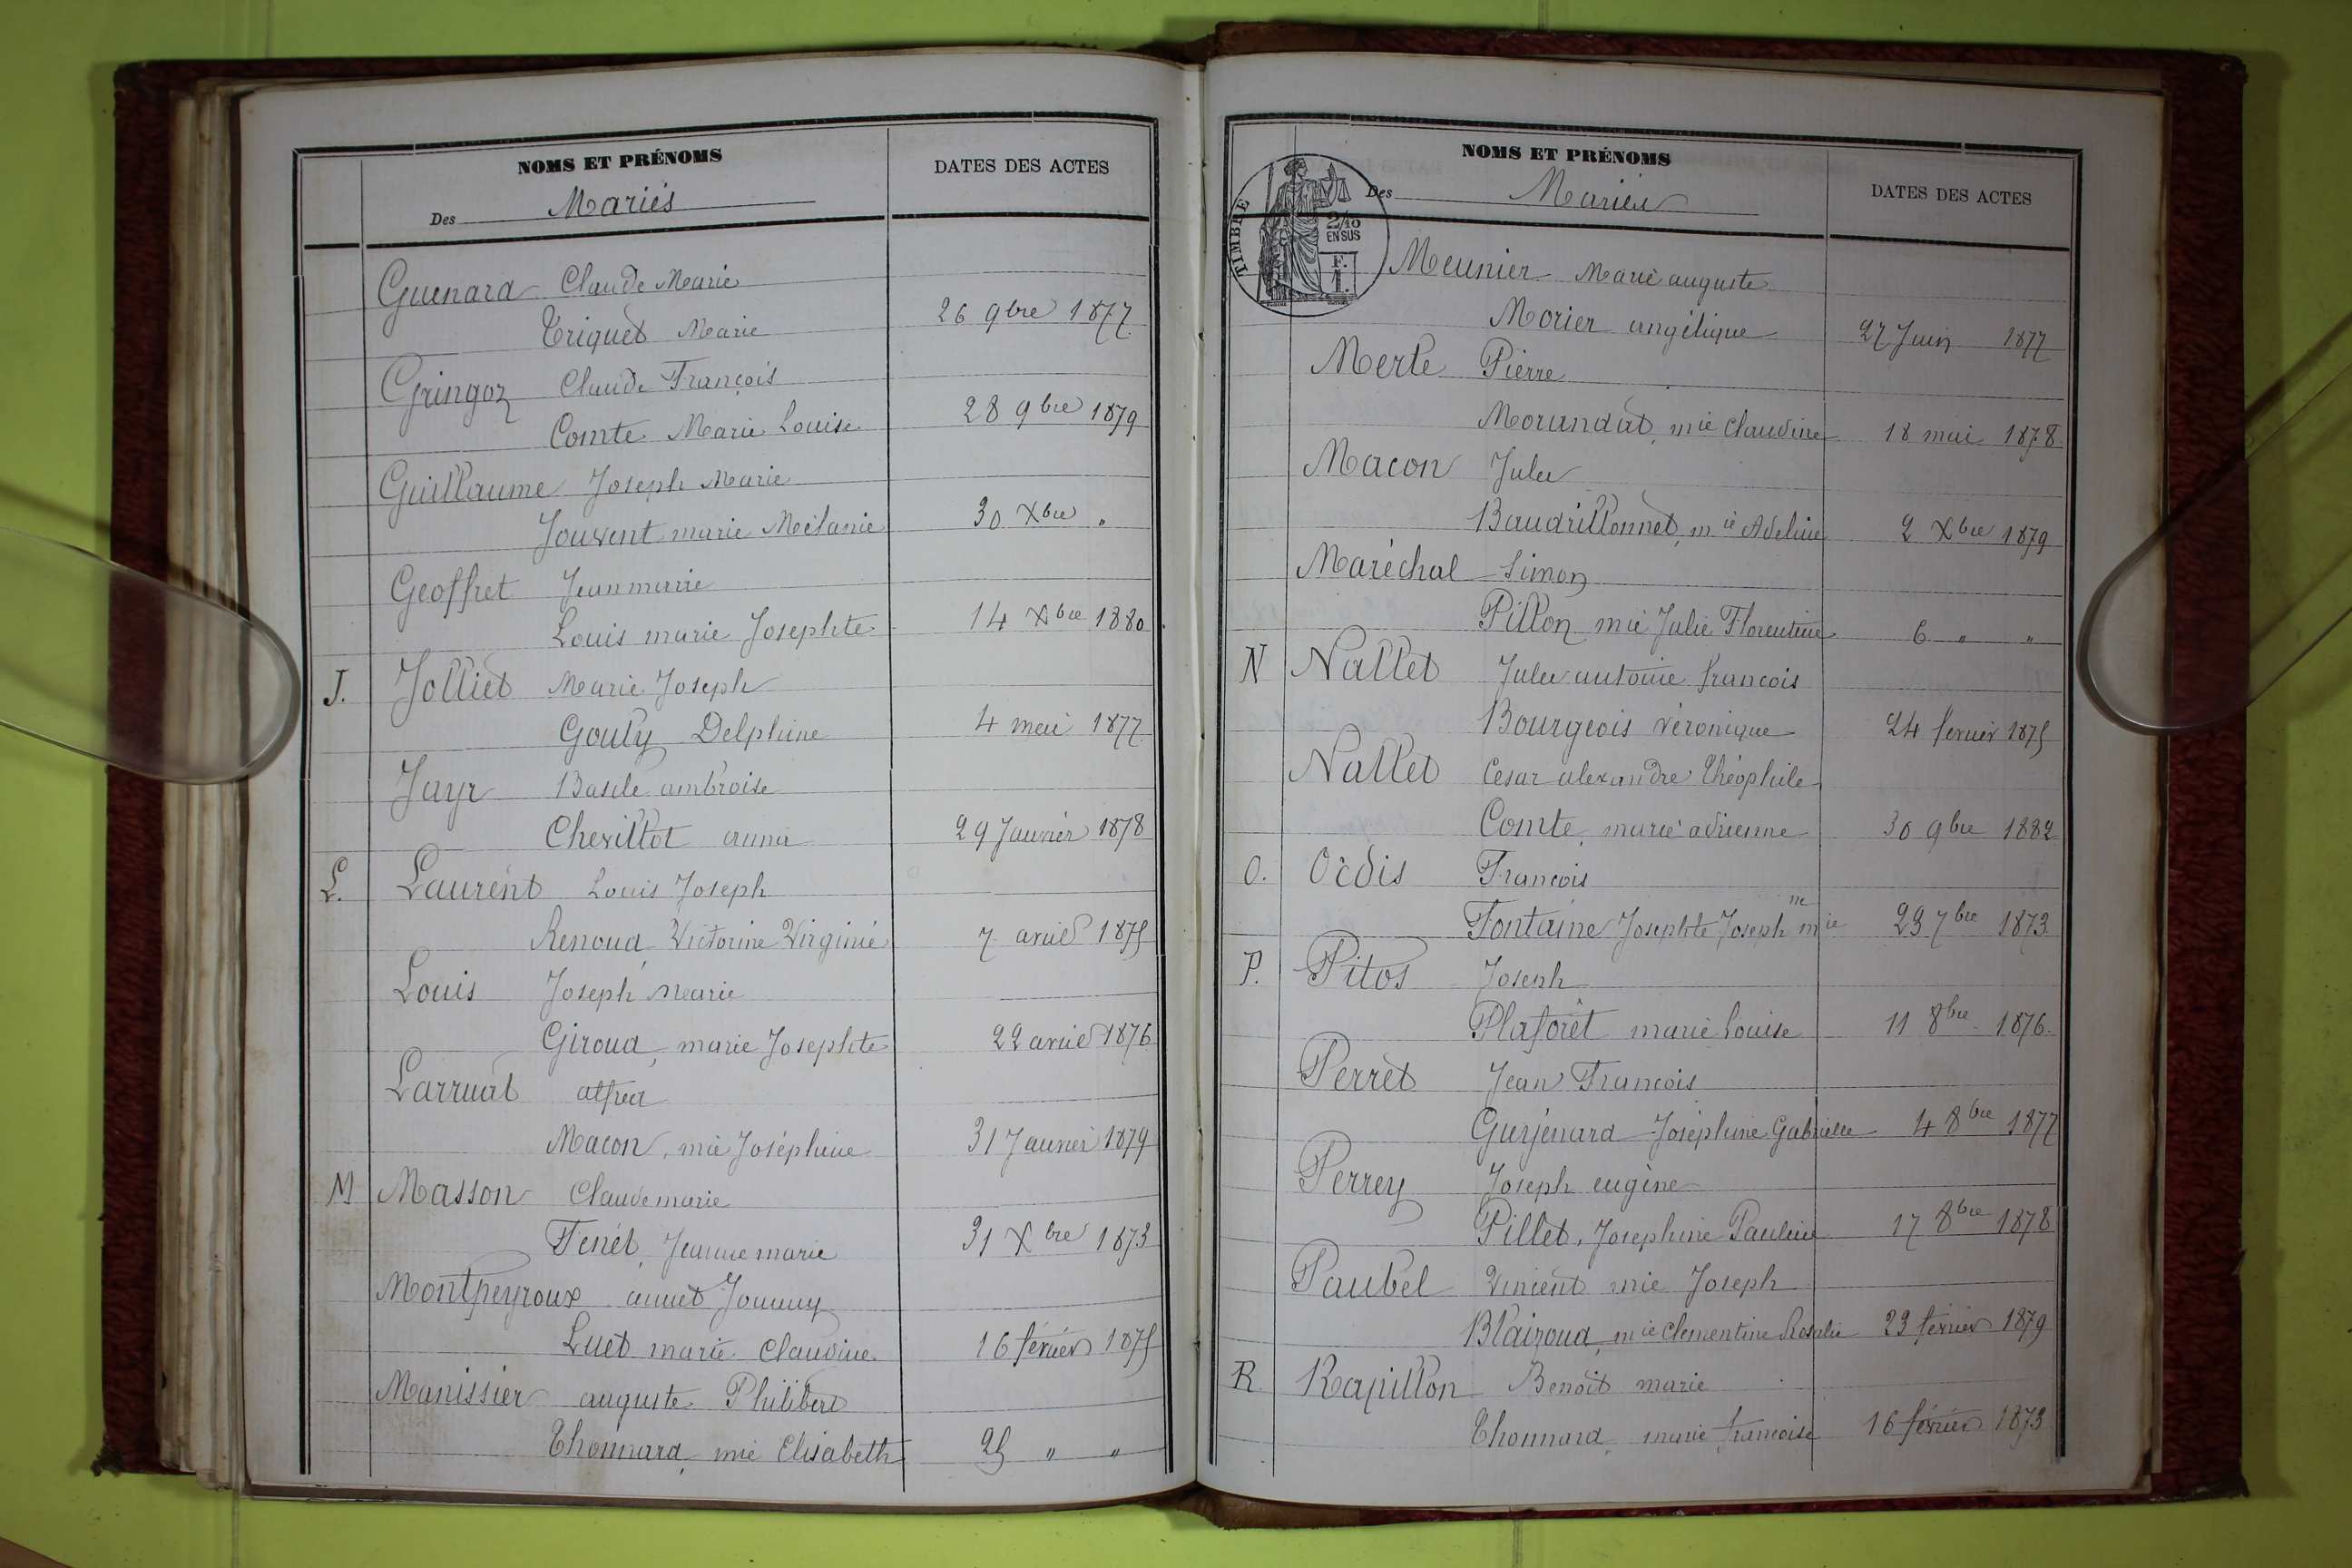 NOMS ET PRÉNOMS
DATES DES ACTES
Des Mariés
Guenard Claude Marie
Triquet Marie 26 9bre 1877
Gringoz Claude François
Comte Marie Louise 28 9bre 1879
Guillaume Joseph Marie
Jouvent marie Mélanie 30 Xbre "
Geoffret Jean marie
Louis marie Josephte 14 Xbre 1880
J. Jolliet Marie Joseph
Gouly Delphine 4 mai 1877
Jayr Basile ambroise
Chevillot anna 29 Janvier 1878
L. Laurent Louis Joseph
Renoud Victorine Virginie 7 avril 1875
Louis Joseph Marie
Giroud, marie Josephte 22 avril 1876
Larruat alfred
Macon, mie Joséphine 31 Janvier 1879
M Masson Claude marie
Fenét, Jeanne marie 31 Xbre 1873
Montpeyroux annet
Luet marie Claudine 16 février 1875
Manissier auguste Philibert
Thonnard, mie Elisabeth 25 " "
NOMS ET PRÉNOMS
DATES DES ACTES
Des Mariés
TIMBRE
2/10
EN SUS
F.
1.
Meunier Marie auguste
Morier angélique 27 Juin 1877
Merle Pierre
Morandat, mie Claudine 18 mai 1878
Macon Jules
Baudrillonnet, mie Adeline 2 Xbre 1879
Maréchal Simon
Pillon mie Julie Florentine 6 " "
N Nallet Jules antoine francois
Bourgeois véronique 24 fevrier 1875
Nallet César alexandre Théophile
Comte, marie adrienne 30 9bre 1882
O. Oédis Francois
Fontaine Josephte Joseph mie 23 7bre 1873
P. Pitos Joseph
Plaforêt marie Louise 11 8bre 1876
Perret Jean Francois
Gurjénard Joséphine Gabrielle 4 8bre 1877
Perrey Joseph eugène
Pillet, Josephine Pauline 17 8bre 1878
Paubel Vincent mie Joseph
Blairoud, mie Clementine Rosalie 23 février 1879
R. Rapillon Benoît marie
Thonnard, marie francoise 16 février 1873